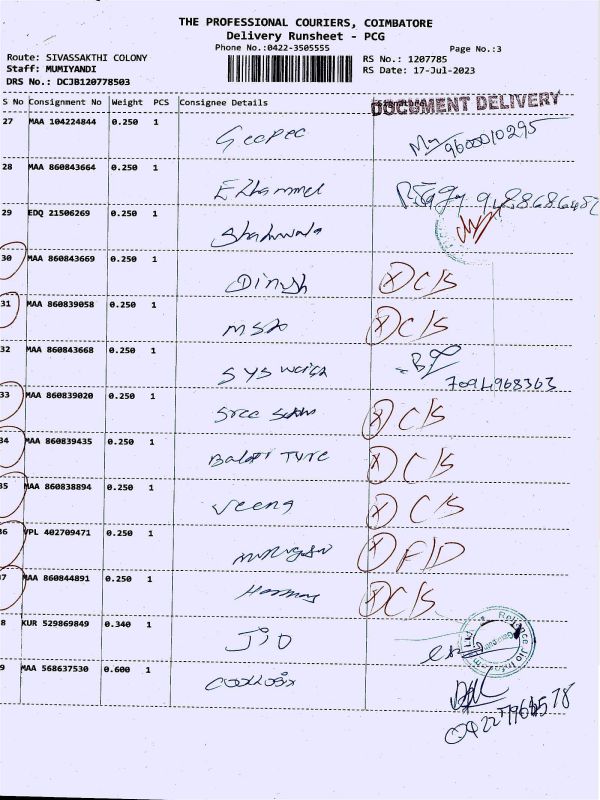 THE PROFESSIONAL COURIERS, COIMBATORE
Delivery Runsheet - PCG
Phone No.:0422-3505555
Page No.:3
Route: SIVASSAKTHI COLONY
Staff: MUMIYANDI
DRS No.: DCJB120778503
RS No.: 1207785
RS Date: 17-Jul-2023
S No Consignment No Weight PCS Consignee Details
DOCUMENT DELIVERY
27 MAA 104224844 0.250 1 9600010295
28 MAA 860843664 0.250 1
29 EDQ 21506269 0.250 1
30 MAA 860843669 0.250 1 Dinesh X C/S
31 MAA 860839058 0.250 1 X C/S
32 MAA 860843668 0.250 1 7094968363
33 MAA 860839020 0.250 1 Sree X C/S
34 MAA 860839435 0.250 1 X C/S
35 MAA 860838894 0.250 1 Veena X C/S
36 VPL 402709471 0.250 1 Murugesan X F/D
37 MAA 860844891 0.250 1 X C/S
8 KUR 529869849 0.340 1 JIO Reliance Jio
9 MAA 568637530 0.600 1